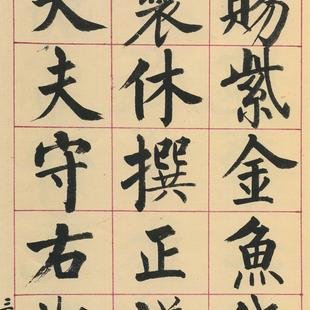 賜紫金魚
裴休撰正
大夫守右
三